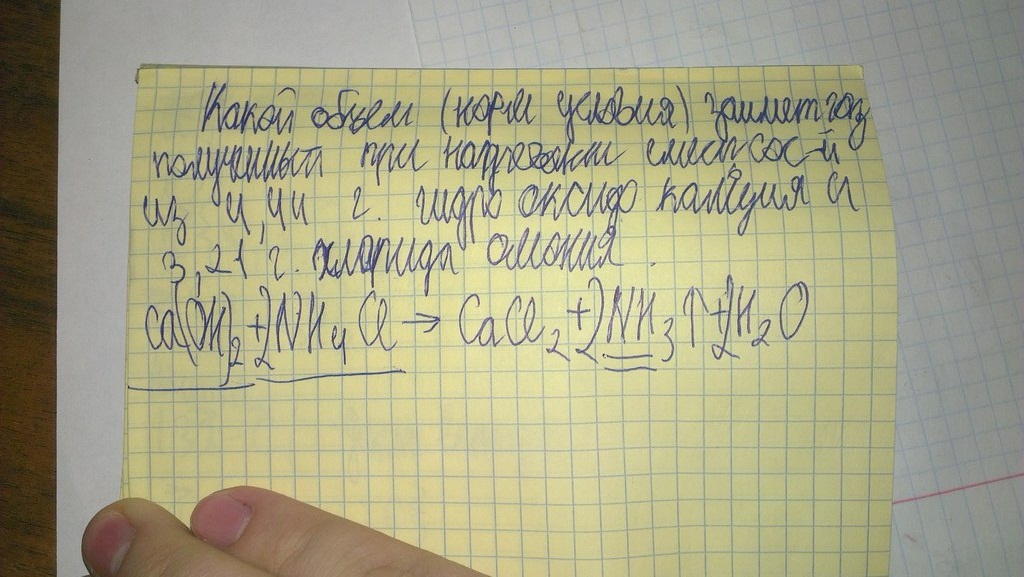 Какой объем (норм условия) займет газ
полученный при нагревании смеси сос-й
из 4,44 г. гидро оксида кальция и
3,21 г. хлорида амония.
Ca(OH)₂ + 2NH₄Cl → CaCl₂ + 2NH₃↑ + 2H₂O